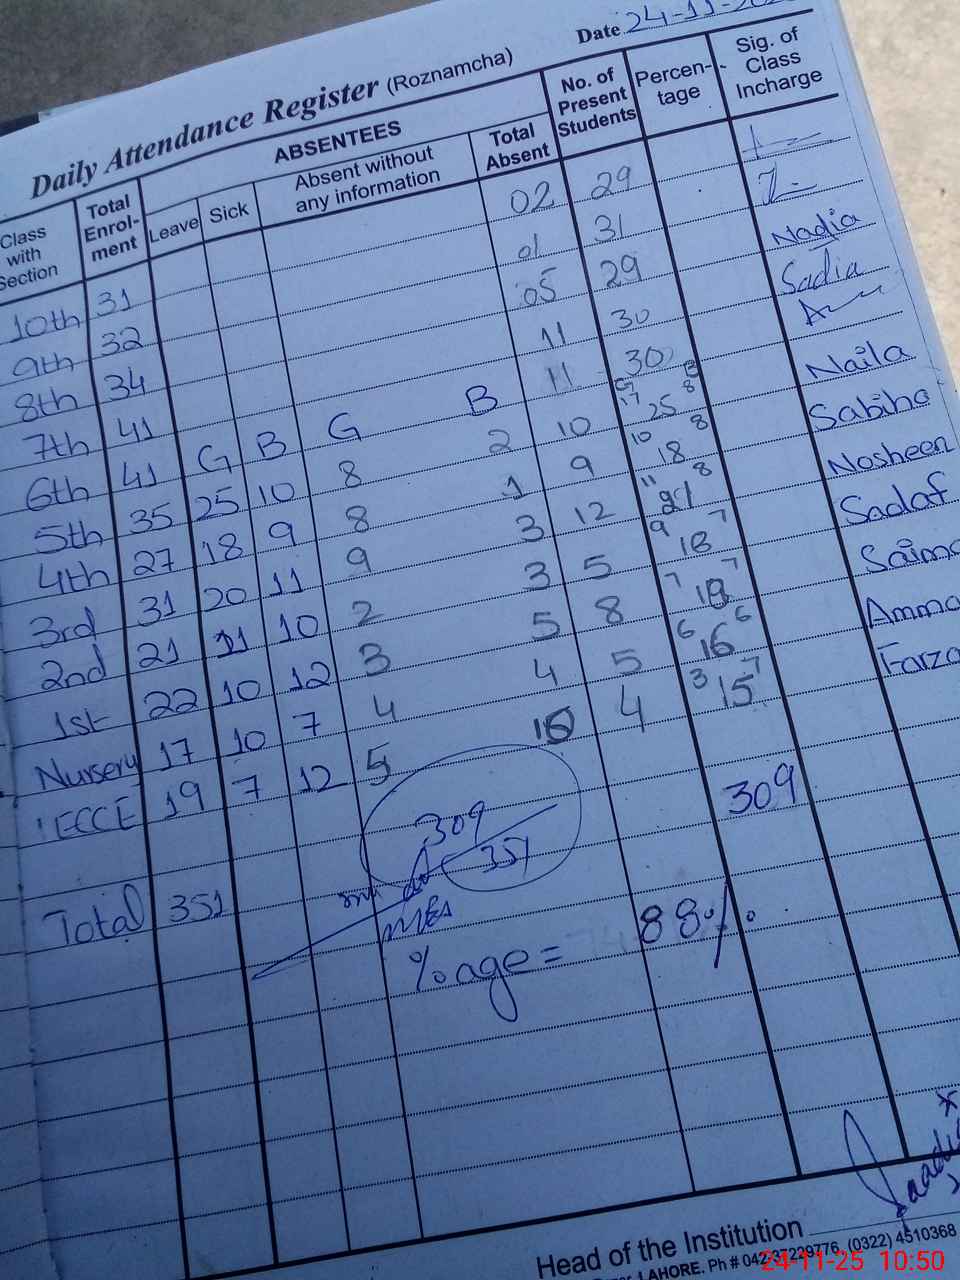 Date 24-11-20
Daily Attendance Register (Roznamcha)
Class with Section Total Enrol-ment ABSENTEES Leave Sick Absent without any information Total Absent No. of Present Students Percen-tage Sig. of Class Incharge
10th 31 02 29
9th 32 01 31
8th 34 05 29 Nadia
7th 41 11 30 Sadia
6th 41 G B G B 11 30 G B
5th 35 25 10 8 2 10 17 25 8 Naila
4th 27 18 9 8 1 9 10 18 8 Sabiha
3rd 31 20 11 9 3 12 11 8 Nosheen
2nd 21 11 10 2 3 5 9 7 Sadaf
1st 22 10 12 3 5 8 7 7 Saima
Nursery 17 10 7 4 4 5 6 6 Amma
ECCE 19 7 12 5 4 3 15 7 Farza
309
309
351
Total 351
%age = 88%
Head of the Institution
LAHORE. Ph # 042-37229776, (0322) 4510368
24-11-25 10:50